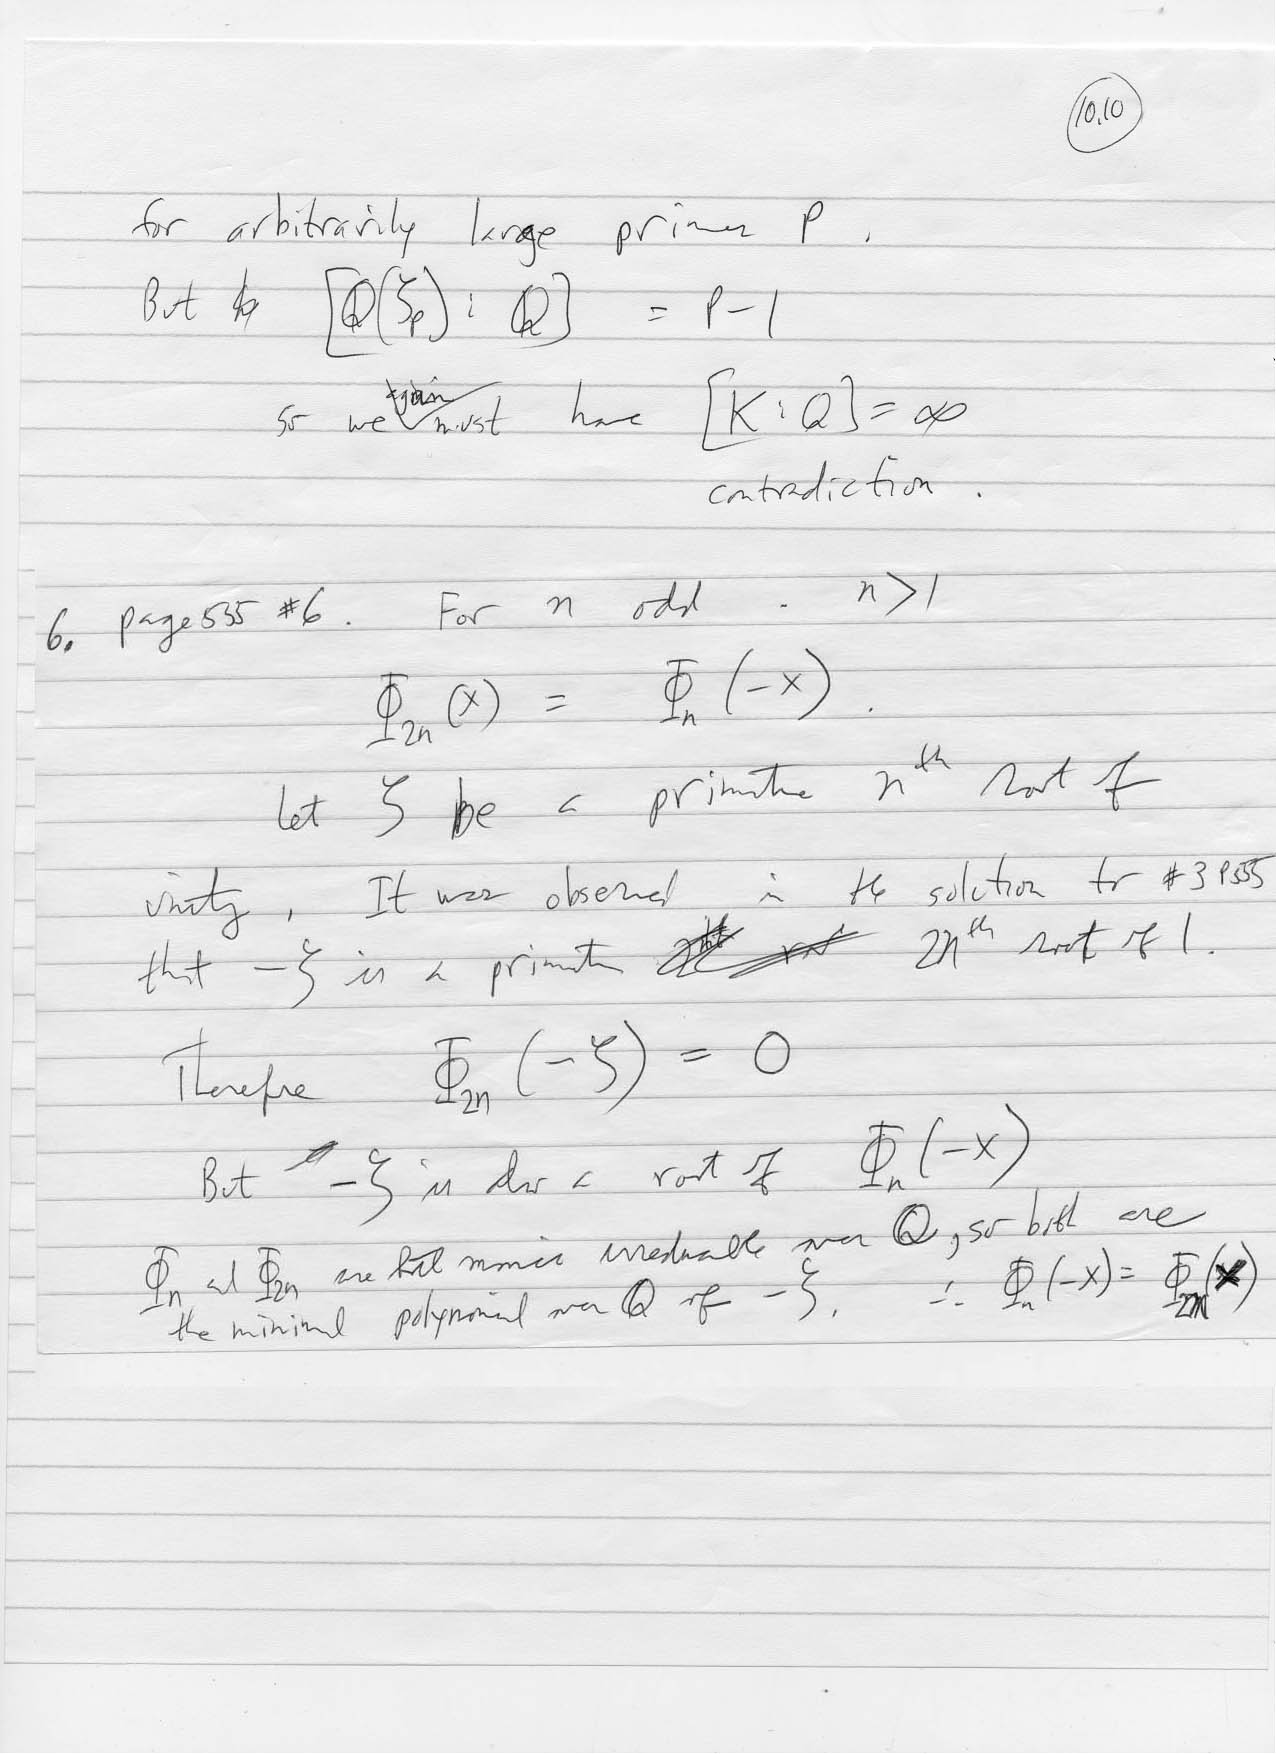 10.10
for arbitrarily large primes p.
But [Q(ζ_p) : Q] = p-1
again
so we must have [K : Q] = ∞
contradiction.
6. page 555 #6. For n odd . n>1
Φ_2n (x) = Φ_n (-x).
Let ζ be a primitive n^th root of
unity, It was observed in the solution to #3 p555
that -ζ is a primitive 2n^th root of 1.
Therefore Φ_2n (-ζ) = 0
But -ζ is also a root of Φ_n (-x)
Φ_n and Φ_2n are both monic irreducible over Q, so both are
the minimal polynomial over Q of -ζ. ∴ Φ_n (-x) = Φ_2n (x)